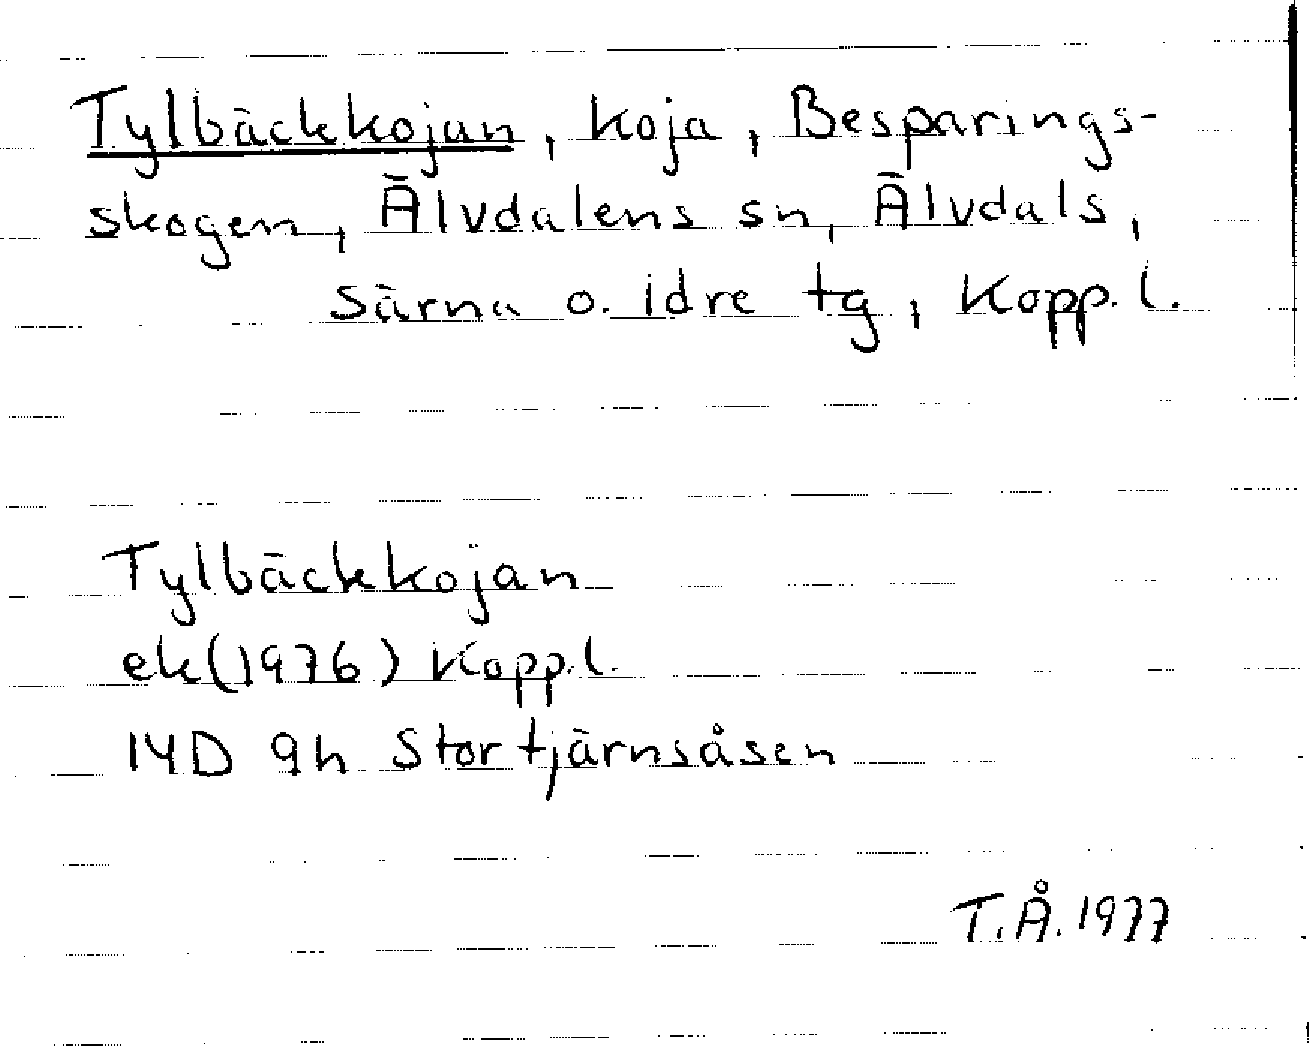 Tylbäckkojan, koja, Besparings-
skogen, Älvdalens sn, Älvdals,
Särna o. Idre tg, Kopp. l.
Tylbäckkojan
ek(1976) Kopp.l.
14D 9h Stortjärnsåsen
T.Å. 1977